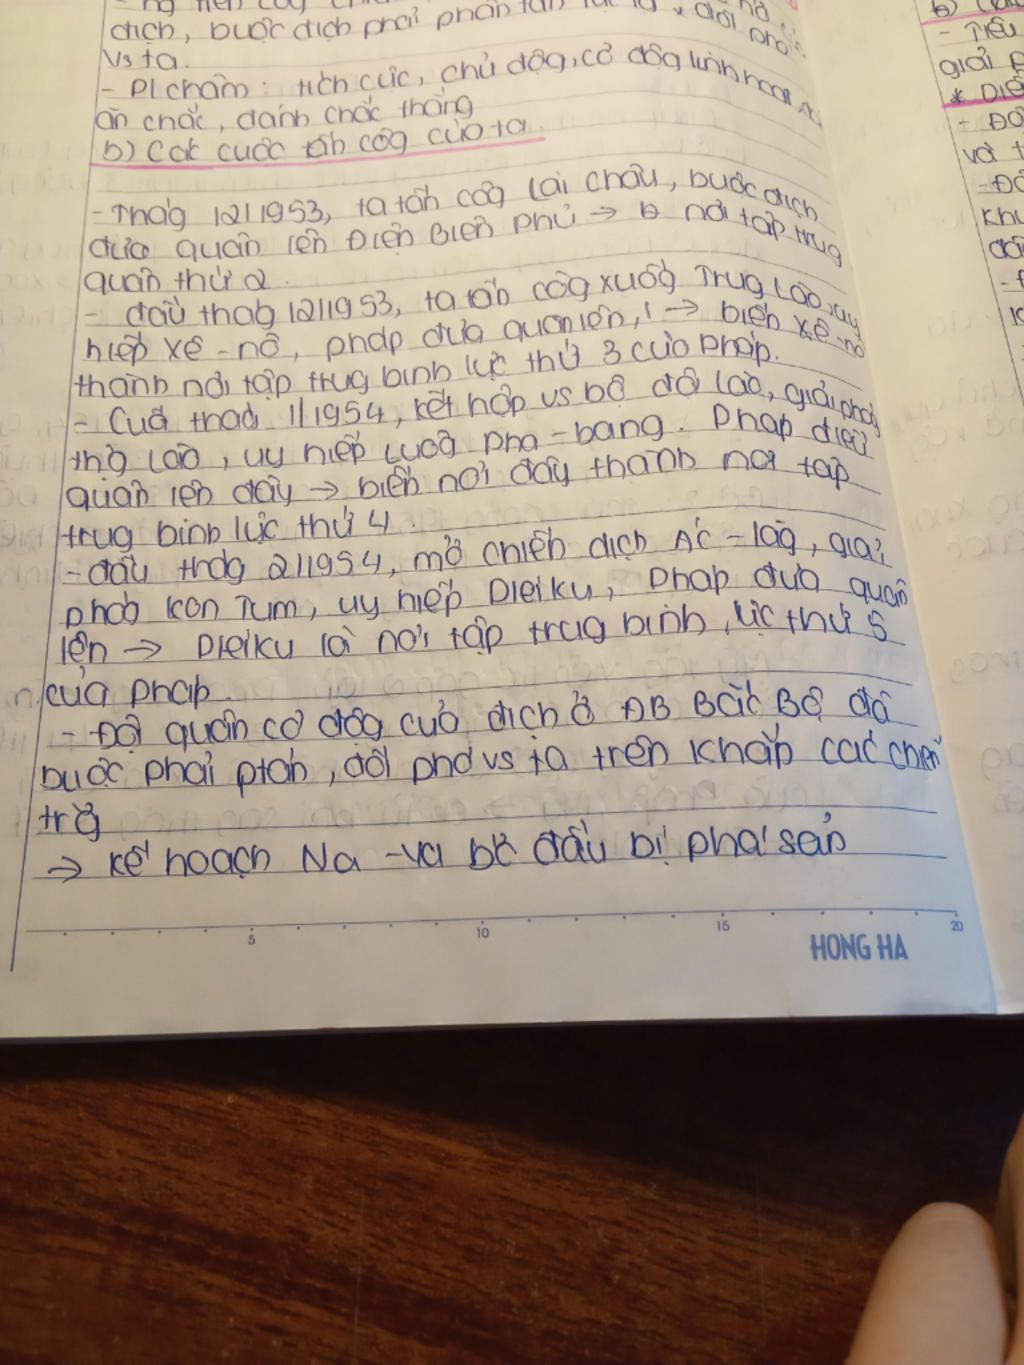 địch, buộc địch phải phân tán lực lg đối phó
vs ta.
- Plchâm: tích cực, chủ độg, cơ độg linh hoạt
ăn chắc, đánh chắc thắng
b) Các cuộc tấn côg của ta.
- Thág 12/1953, ta tấn côg Lai Châu, buộc địch
đưa quân lên Điện Biên Phủ → nơi tập trug
quân thứ 2.
- đầu thág 12/1953, ta tấn côg xuốg Trug Lào, uy
hiếp Xê-nô, pháp đưa quân lên, → biến xê-nô
thành nơi tập trug binh lực thứ 3 của pháp.
- Cuối thág 1/1954, kết hợp vs bộ đội Lào, giải phóg
thg Lào, uy hiếp Luôg pha-bang. Pháp điều
quân lên đây → biến nơi đây thành nơi tập
trug binh lực thứ 4.
- đầu thág 2/1954, mở chiến dịch Ac-lăg, giải
phóg Kon Tum, uy hiếp Pleiku, Pháp đưa quân
lên → Pleiku là nơi tập trug binh lực thứ 5
của pháp.
- Đội quân cơ độg của địch ở ĐB Bắc Bộ đã
buộc phải ptán, đối phó vs ta trên khắp các chiến
trg
→ Kế hoạch Na-va bc đầu bị phá sản
5 10 15 20
HONG HA
b)
- Tiêu
giải p
* Diễ
- Đợ
và t
- Đợ
khu